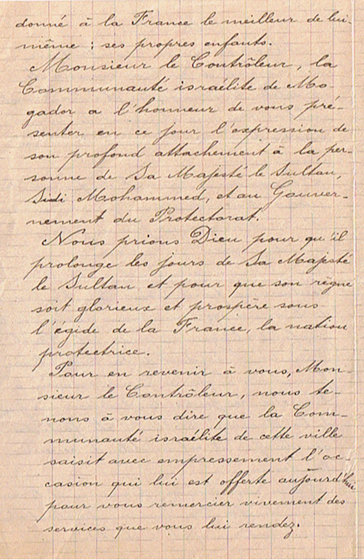 donné à la France le meilleur de lui
même : ses propres enfants.
Monsieur le Contrôleur, la
Communauté israélite de Mo-
gador a l'honneur de vous pré-
senter en ce jour l'expression de
son profond attachement à la per-
sonne de Sa Majesté le Sultan,
Sidi Mohammed, et au Gouver-
nement du Protectorat.
Nous prions Dieu pour qu'il
prolonge les jours de Sa Majesté
le Sultan et pour que son règne
soit glorieux et prospère sous
l'egide de la France, la nation
protectrice.
Pour en revenir à vous, Mon-
sieur le Contrôleur, nous te-
nons à vous dire que la Com-
munauté israélite de cette ville
saisit avec empressement l'oc-
casion qui lui est offerte aujourd'hui
pour vous remercier vivement des
services que vous lui rendez.